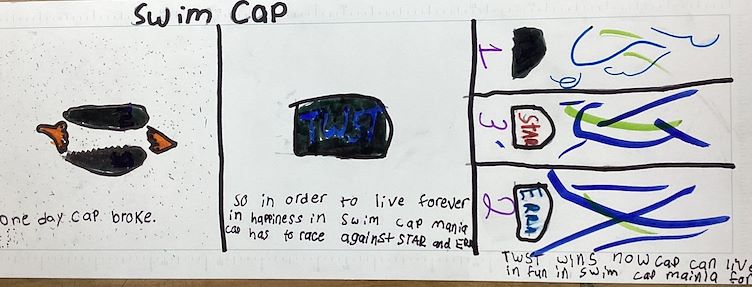 Swim Cap
one day cap broke.
TWST
So in order to live forever
in happiness in Swim cap mania
cap has to race against STAR and ERR
1
3
STAR
2
ERRA
TWST wins now cap can live
in fun in swim cap mainia for